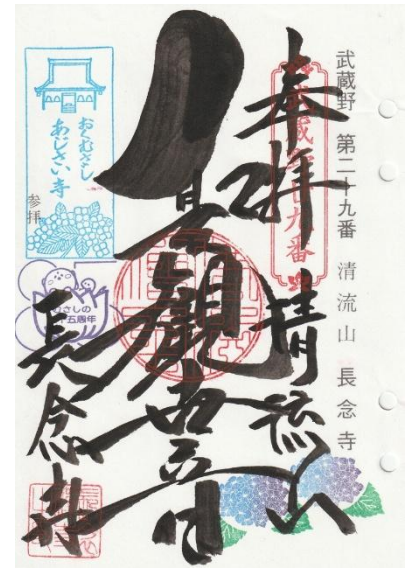 武蔵野 第二十九番 清流山 長念寺
奉拝 清流山
聖観世音
長念寺
おくむさし
あじさい寺
参拝
さしの
五周年
九番